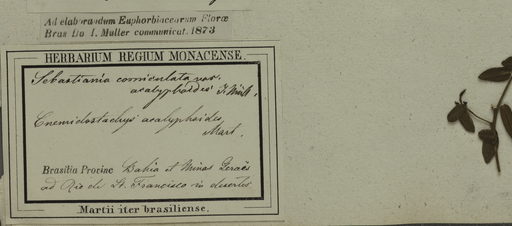 Ad elaborandum Euphorbiacearum Floræ
Bras lia I. Muller communicat. 1873
HERBARIUM REGIUM MONACENSE.
Sebastiania corniculata var.
acalyphoides J. Müll.
Cnemidostachys acalyphoides,
Mart.
Brasilia Provinc Bahia et Minas Geraës
ad Rio de St. Francisco in desertis
Martii iter brasiliense.